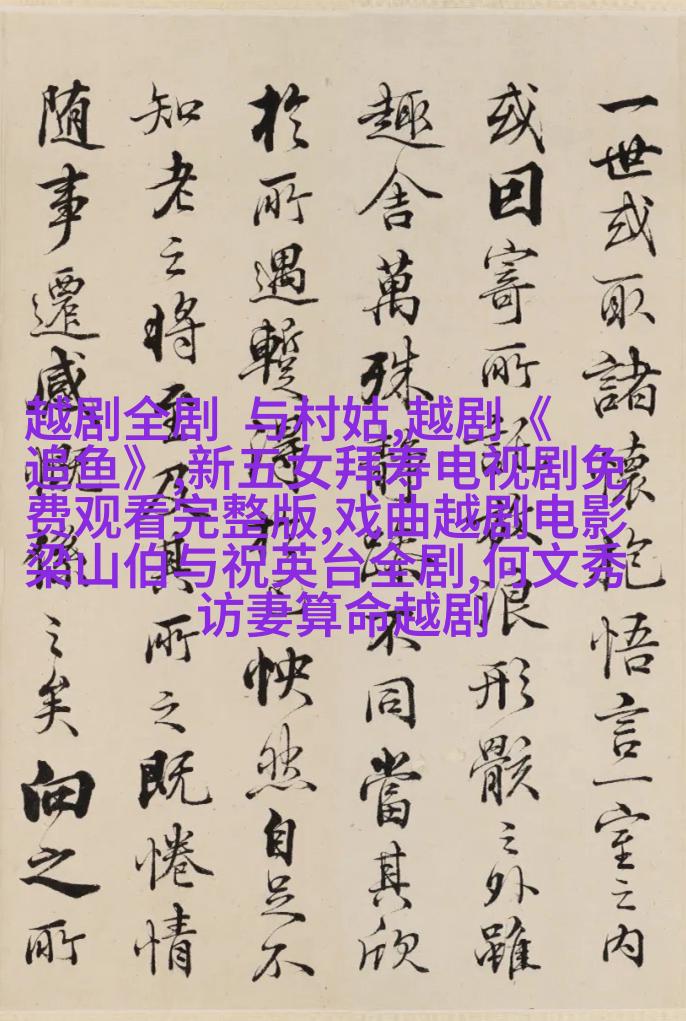 一世或取諸懷抱悟言一室之内
或因寄所託放浪形骸之外雖
趣舍萬殊静躁不同當其欣
於所遇暫得於己怏然自足不
知老之将至及其所之既惓情
随事遷感慨係之矣向之所
越剧全剧 与村姑,越剧《
追鱼》,新五女拜寿电视剧免
费观看完整版,戏曲越剧电影
梁山伯与祝英台全剧,何文秀
访妻算命越剧